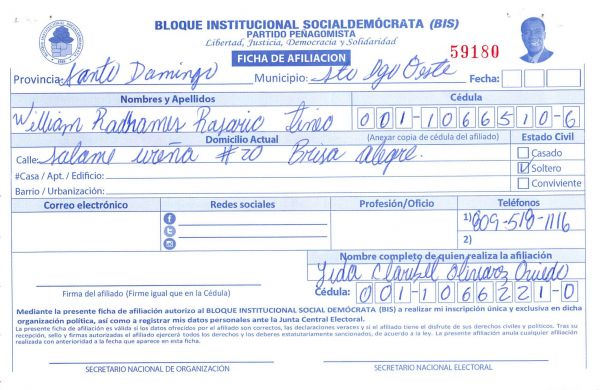 BLOQUE INSTITUCIONAL SOCIALDEMÓCRATA (BIS)
PARTIDO PEÑAGOMISTA
Libertad, Justicia, Democracia y Solidaridad
FICHA DE AFILIACION
59180
Provincia: Santo Domingo Municipio: Sto Dgo Oeste Fecha:
Nombres y Apellidos Cédula
William Radhames Rosario Tineo 001-1066510-6
Domicilio Actual (Anexar copia de cédula del afiliado) Estado Civil
Calle: Salome ureña #20 Brisa alegre. Casado
#Casa / Apt. / Edificio: Soltero
Barrio / Urbanización: Conviviente
Correo electrónico Redes sociales Profesión/Oficio Teléfonos
1) 809-518-1116
2)
Nombre completo de quien realiza la afiliación
Olivarez Oviedo
Firma del afiliado (Firme igual que en la Cédula) Cédula: 001-1066221-0
Mediante la presente ficha de afiliación autorizo al BLOQUE INSTITUCIONAL SOCIAL DEMÓCRATA (BIS) a realizar mi inscripción única y exclusiva en dicha
organización política, así como a registrar mis datos personales ante la Junta Central Electoral.
La presente ficha de afiliación es válida si los datos ofrecidos por el afiliado son correctos, las declaraciones veraces y si el afiliado tiene el disfrute de sus derechos civiles y políticos. Tras su
recepción, sello y firmas autorizadas el afiliado ejercerá todos los derechos y los deberes estatutariamente sancionados, de acuerdo a la ley. La presente afiliación anula cualquier afiliación
realizada con anterioridad a la fecha que aparece en esta ficha.
SECRETARIO NACIONAL DE ORGANIZACIÓN SECRETARIO NACIONAL ELECTORAL